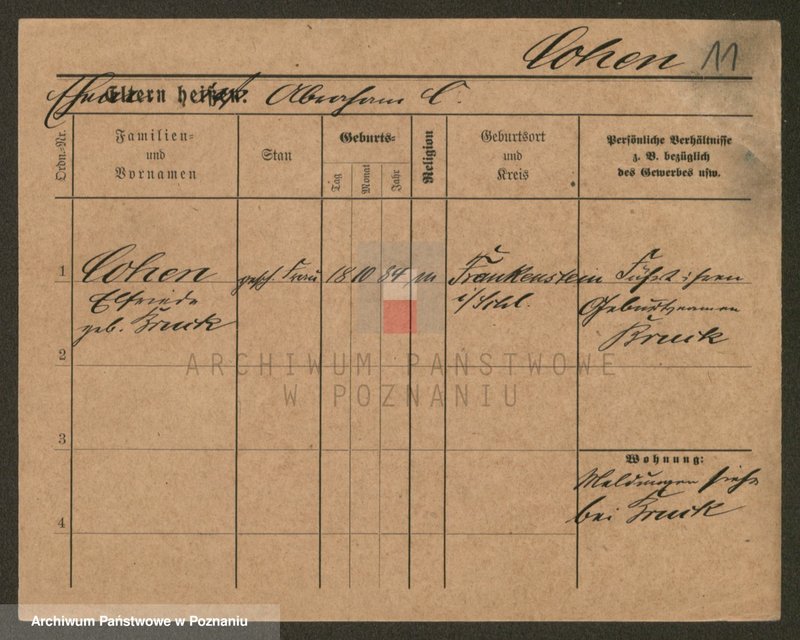 Cohen 11
Eltern heißen: Abraham C.
Ordn.-Nr.
Familien-
und
Vornamen
Stan
Geburts-
Tag
Monat
Jahr
Religion
Geburtsort
und
Kreis
Persönliche Verhältnisse
z. B. bezüglich
des Gewerbes usw.
1 Cohen gesch. Frau 18 10 84 m Frankenstein Führt ihren
Elfriede i/Schl. Geburtsnamen
geb. Bruck Bruck
2
3
Wohnung:
Meldungen siehe
4 bei Bruck
ARCHIWUM PAŃSTWOWE
W POZNANIU
Archiwum Państwowe w Poznaniu